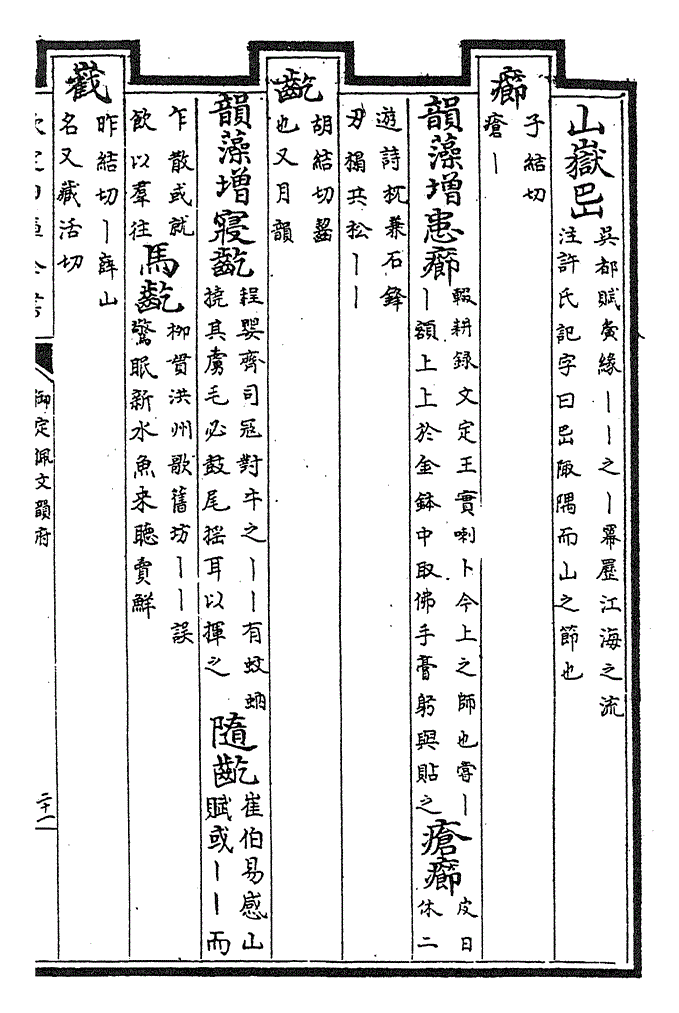 山嶽岊 吳都賦夤緣丨丨之丨羃歷江海之流
注許氏記字曰岊陬隅而山之節也
癤 子結切
瘡丨
韻藻增患癤 輟耕録文定王實喇卜今上之師也嘗丨
丨額上上於金鉢中取佛手膏躬與貼之
瘡癤 皮日
休二
遊詩枕兼石鋒
刃榻共松丨丨
齕 胡結切齧
也又月韻
韻藻增寢齕 程嬰齊司冦對牛之丨丨有蚊蚋
撓其膚毛必鼓尾摇耳以揮之
隨齕 崔伯易感山
賦或丨丨而
乍散或就
飲以羣往
馬齕 柳貫洪州歌舊坊丨丨誤
驚眠新水魚来聽賣鮮
巀 昨結切丨嶭山
名又藏活切
御定佩文韻府
二十一